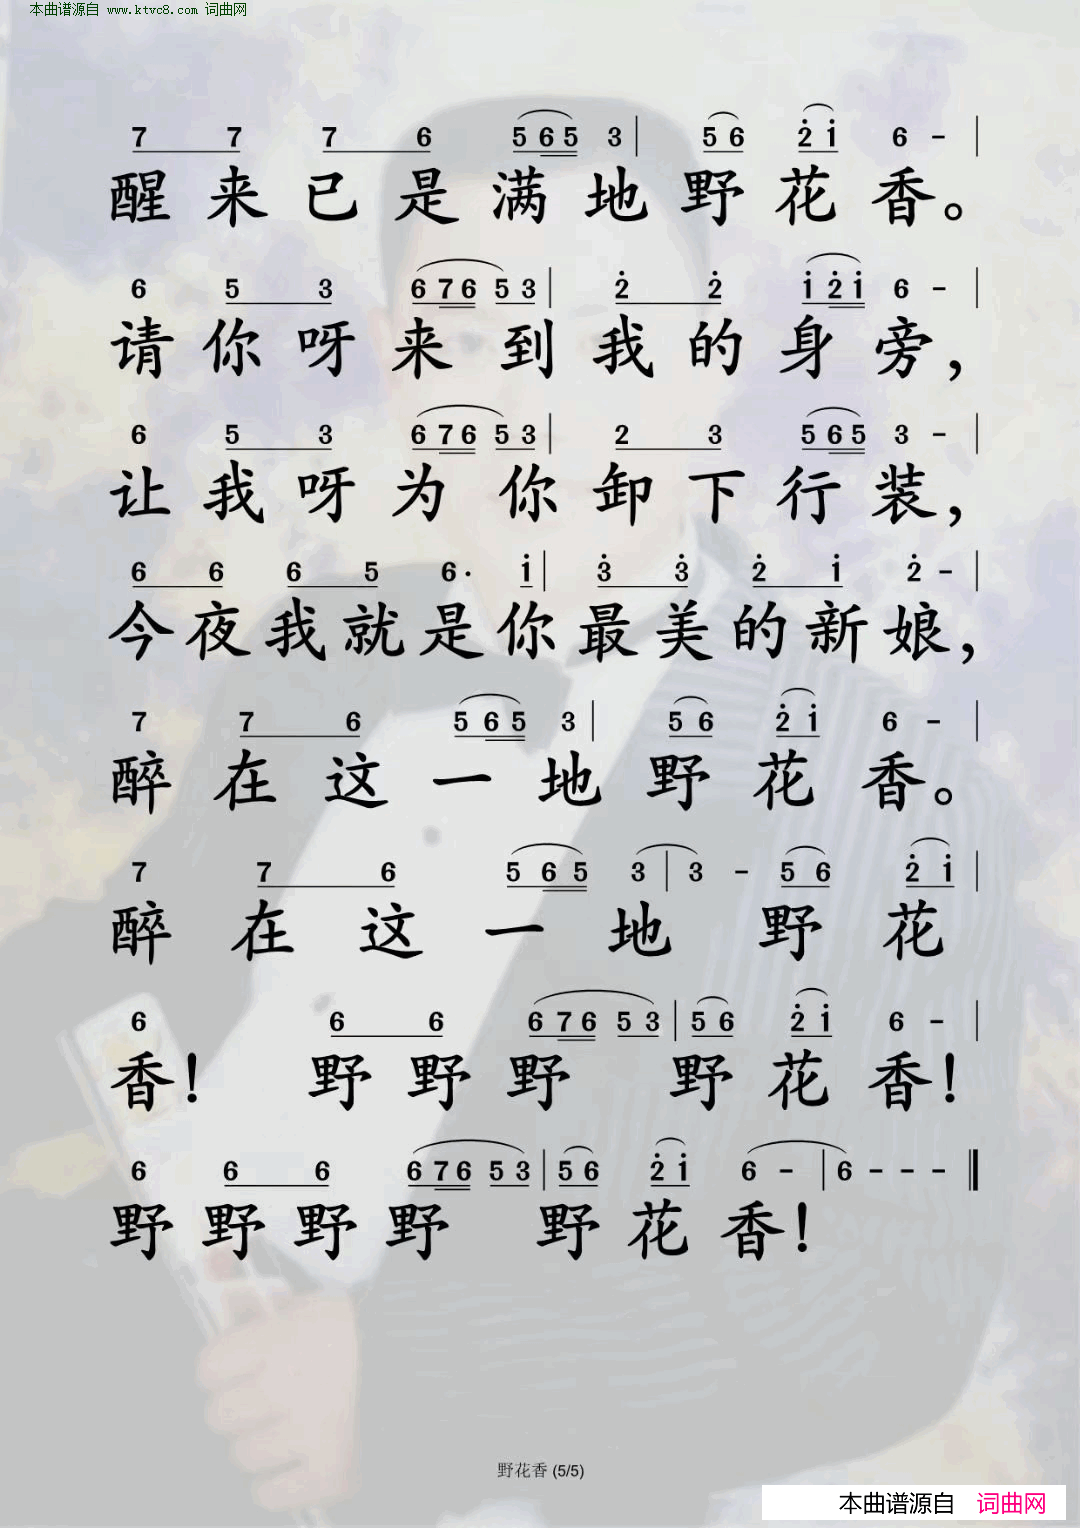 本曲谱源自 www.ktvc8.com 词曲网
7 7 7 6 5 6 5 3 | 5 6 2̇ 1̇ 6 - |
醒来已是满地野花香。
6 5 3 6 7 6 5 3 | 2̇ 2̇ 1̇ 2̇ 1̇ 6 - |
请你呀来到我的身旁，
6 5 3 6 7 6 5 3 | 2 3 5 6 5 3 - |
让我呀为你卸下行装，
6 6 6 5 6· 1̇ | 3̇ 3̇ 2̇ 1̇ 2̇ - |
今夜我就是你最美的新娘，
7 7 6 5 6 5 3 | 5 6 2̇ 1̇ 6 - |
醉在这一地野花香。
7 7 6 5 6 5 3 | 3 - 5 6 2̇ 1̇ |
醉在这一地野花
6 6 6 6 7 6 5 3 | 5 6 2̇ 1̇ 6 - |
香！ 野野野 野花香！
6 6 6 6 7 6 5 3 | 5 6 2̇ 1̇ 6 - | 6 - - - ‖
野野野野 野花香！
野花香 (5/5)
本曲谱源自 词曲网